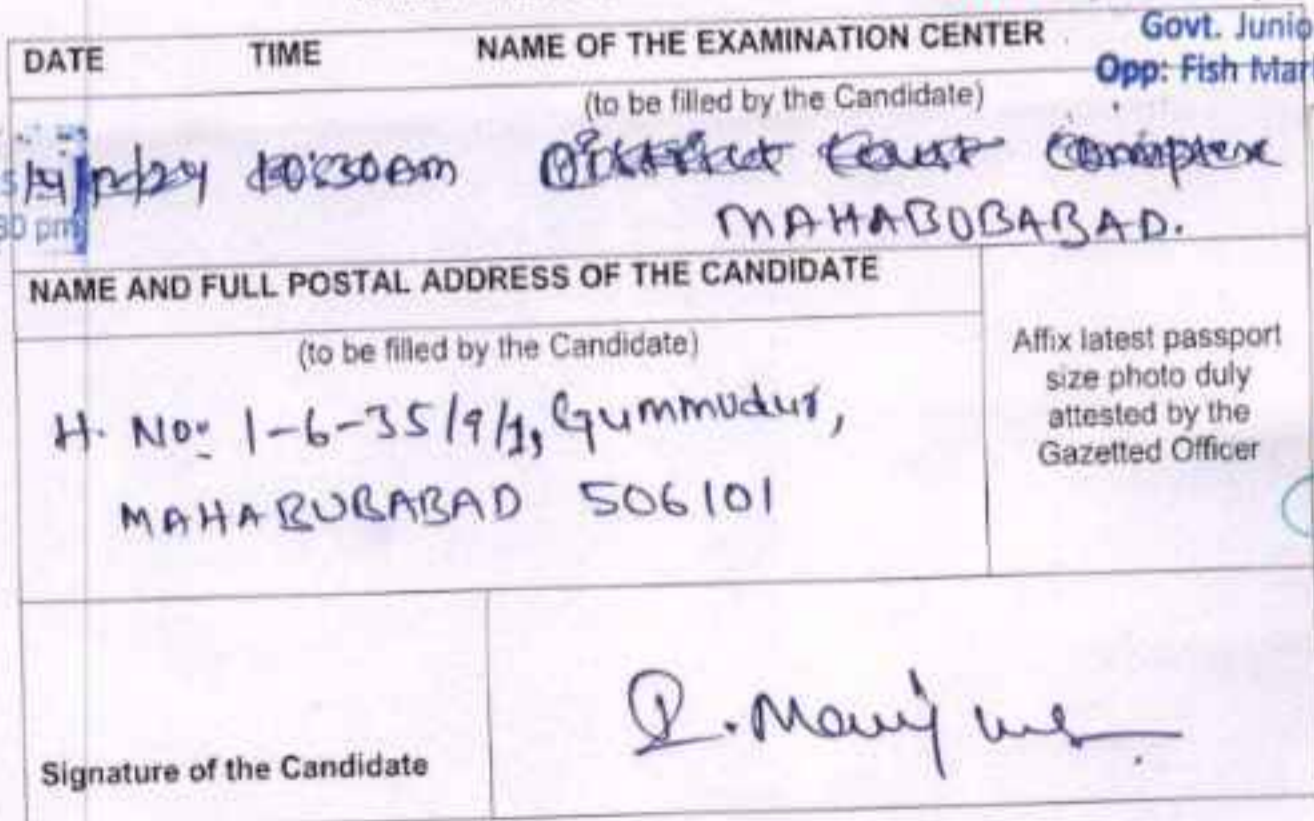 Govt. Junio
DATE TIME NAME OF THE EXAMINATION CENTER
Opp: Fish Mar
(to be filled by the Candidate)
10:30am District Court Complex
30 pm
MAHABUBABAD.
NAME AND FULL POSTAL ADDRESS OF THE CANDIDATE
(to be filled by the Candidate)
H. No: 1-6-35/9/1, Gummudur,
MAHABUBABAD 506101
Affix latest passport
size photo duly
attested by the
Gazetted Officer
Signature of the Candidate